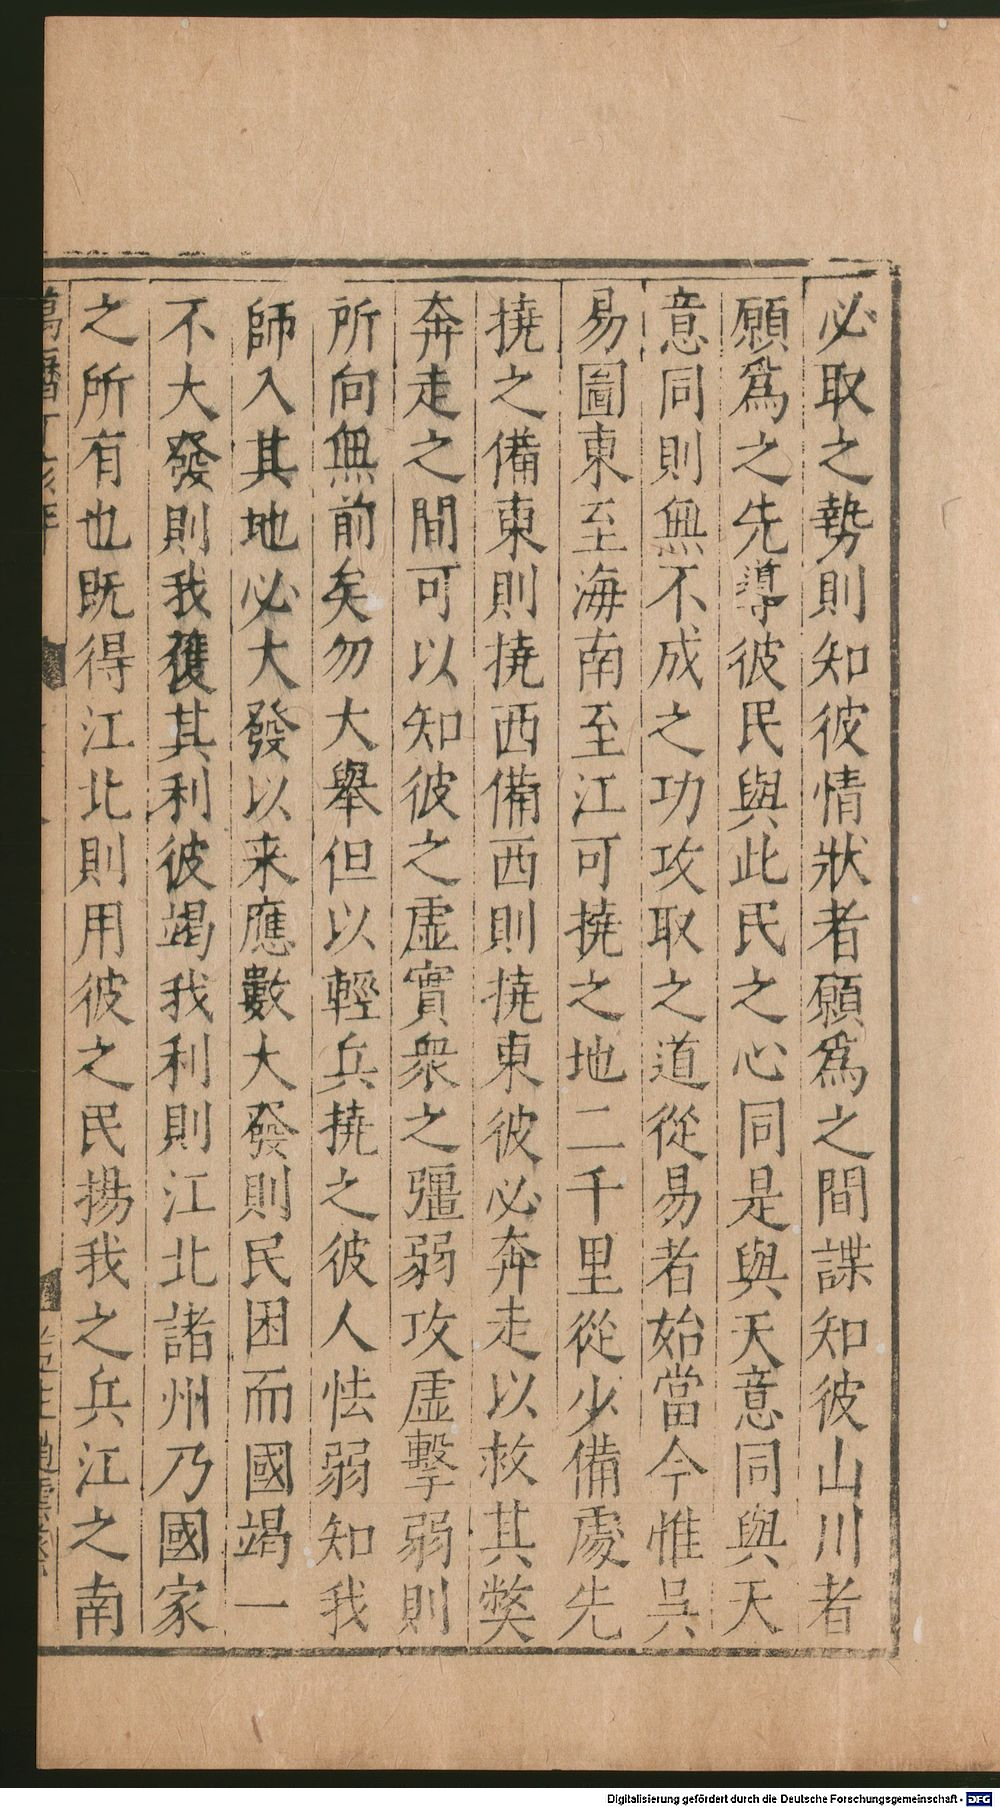 必取之勢則知彼情狀者願爲之間諜知彼山川者
願爲之先導彼民與此民之心同是與天意同與天
意同則無不成之功攻取之道從易者始當今惟吳
易圖東至海南至江可撓之地二千里從少備處先
撓之備東則撓西備西則撓東彼必奔走以救其獘
奔走之間可以知彼之虛實衆之彊弱攻虛擊弱則
所向無前矣勿大舉但以輕兵撓之彼人怯弱知我
師入其地必大發以来應數大發則民困而國竭一
不大發則我獲其利彼竭我利則江北諸州乃國家
之所有也既得江北則用彼之民揚我之兵江之南
萬曆丁亥年
趙雲
Digitalisierung gefördert durch die Deutsche Forschungsgemeinschaft - DFG